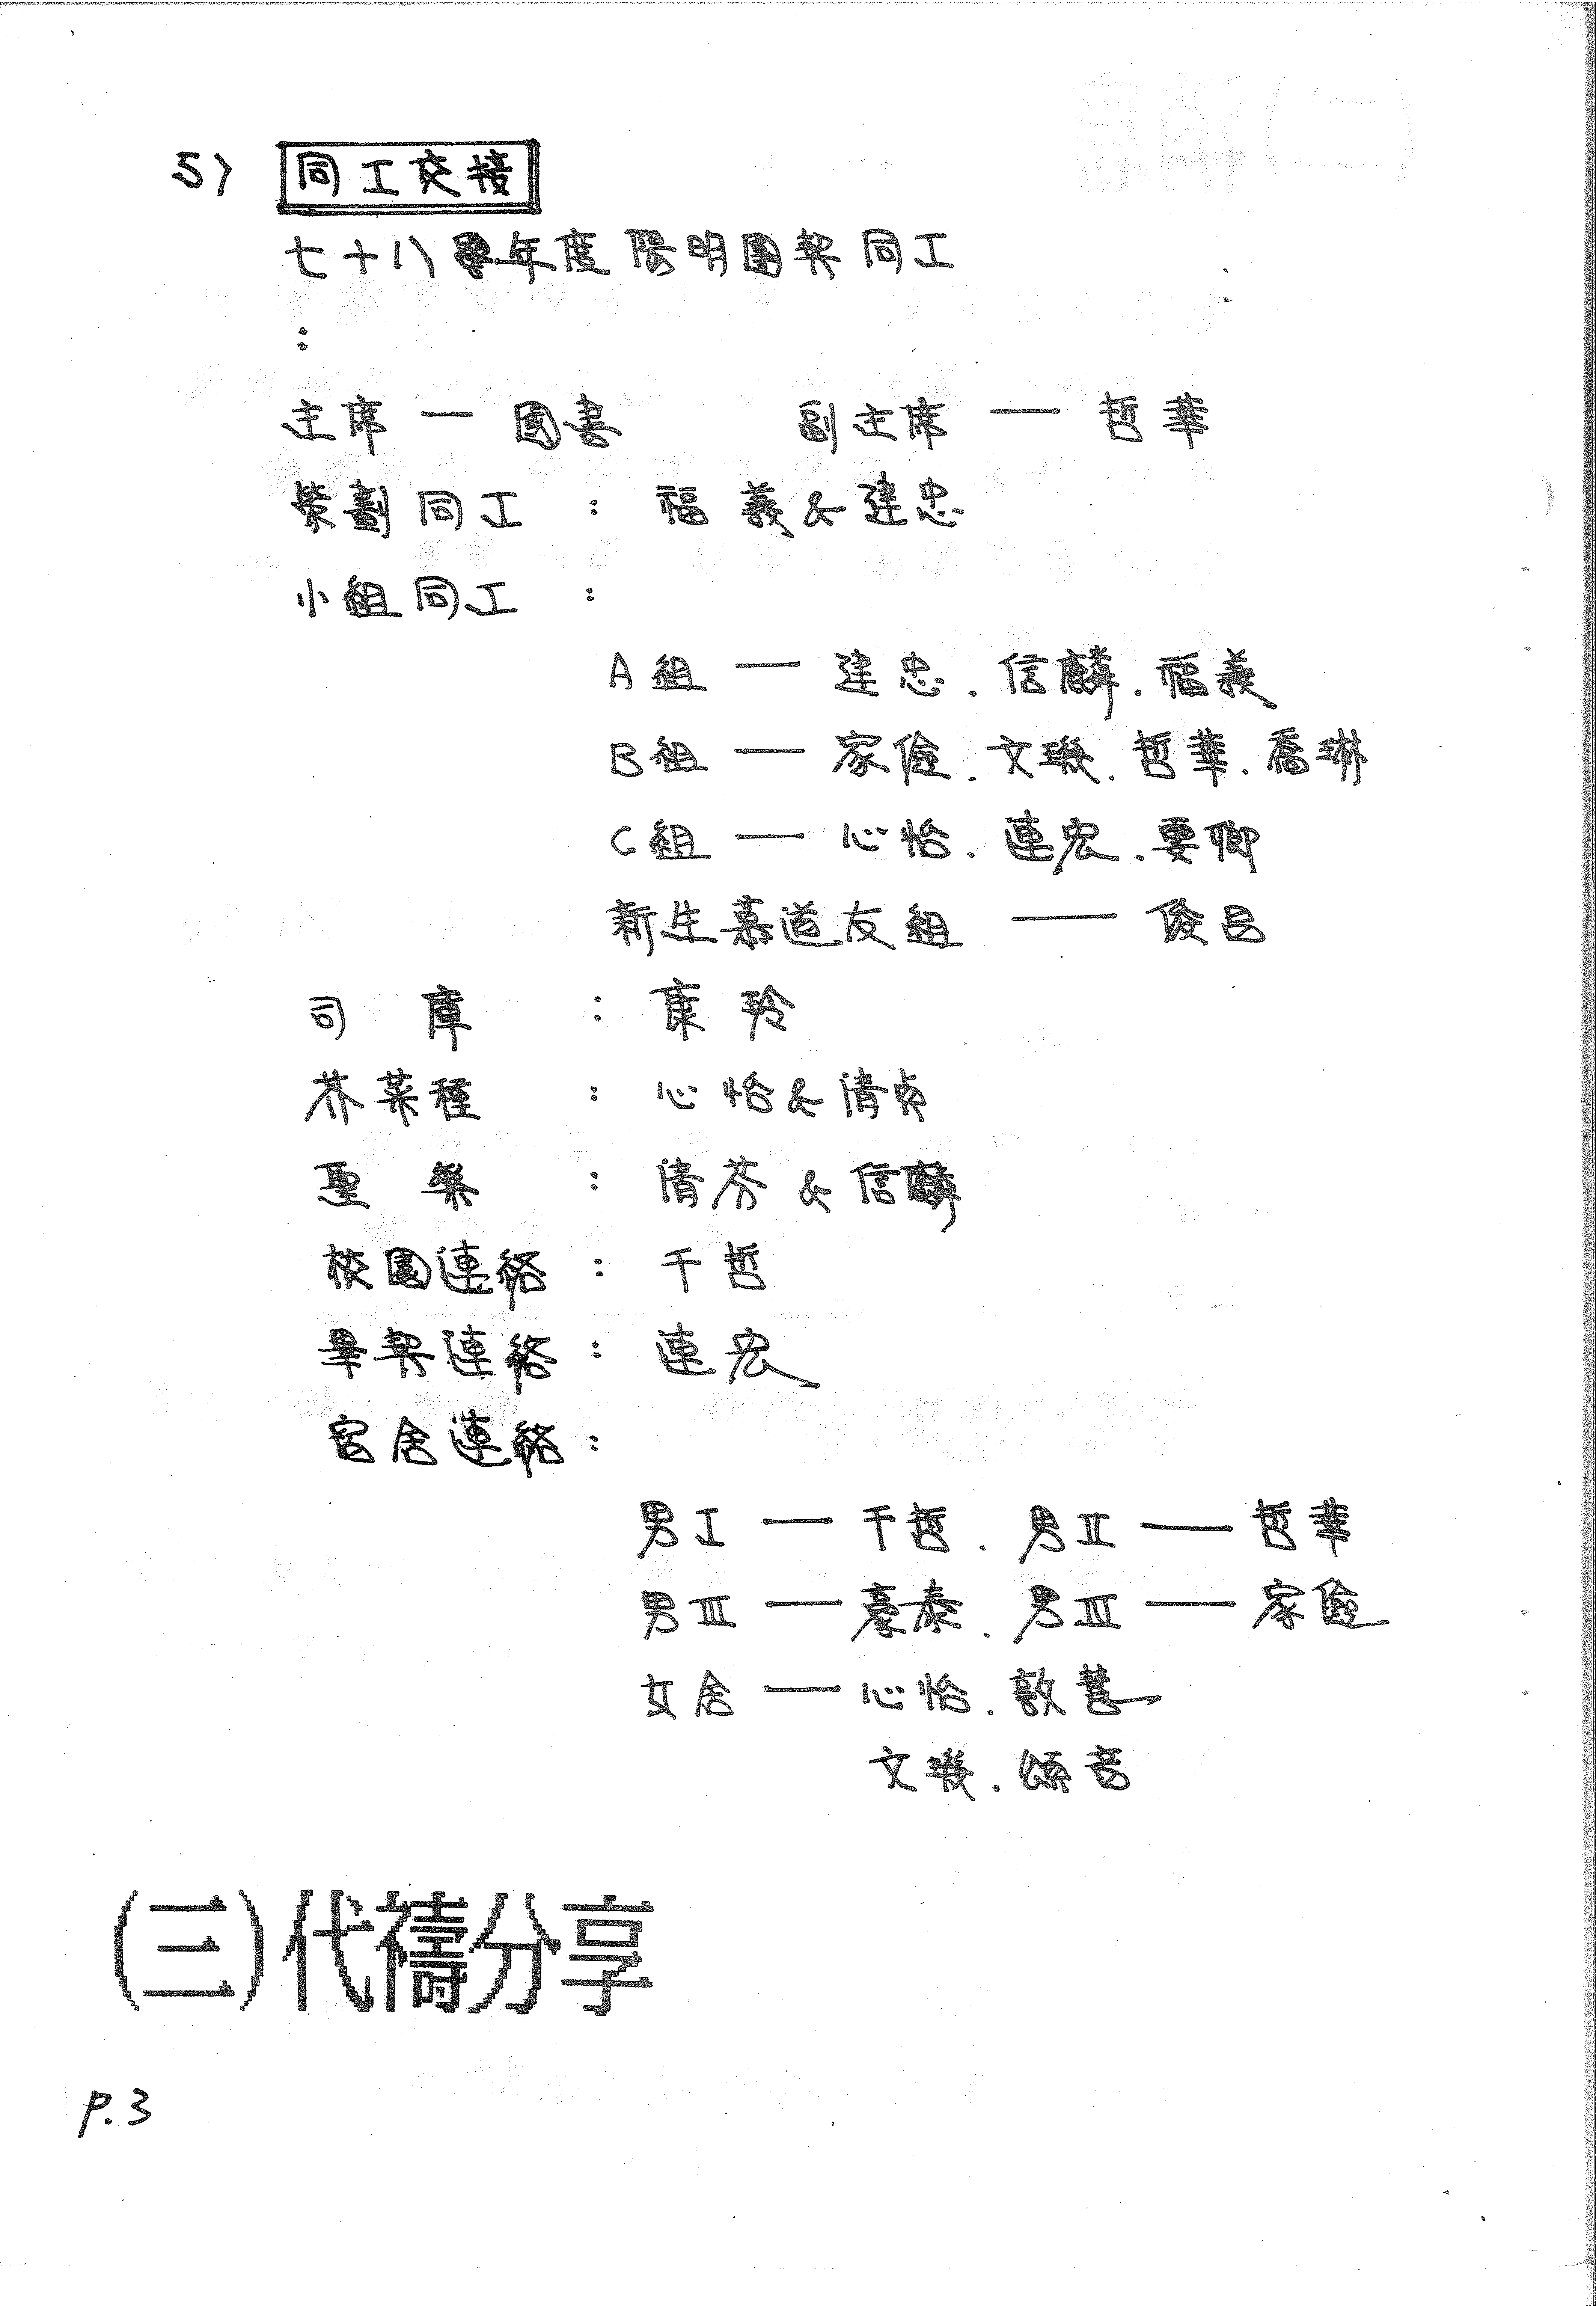 5) 同工交接
七十八學年度陽明團契同工
：
主席 — 國書 副主席 — 哲華
策劃同工 ： 福義 & 建忠
小組同工 ：
A組 — 建忠．信麟．福義
B組 — 家儉．文璣．哲華．喬琳
C組 — 心怡．連宏．雯卿
新生慕道友組 — 俊呂
司庫 ： 康玲
芥菜種 ： 心怡 & 清貞
聖樂 ： 清芬 & 信麟
校園連絡 ： 千哲
畢契連絡 ： 連宏
宿舍連絡 ：
男I — 千哲．男II — 哲華
男III — 豪泰．男III — 家儉
女舍 — 心怡．敦
文璣．頌音
(三)代禱分享
P.3